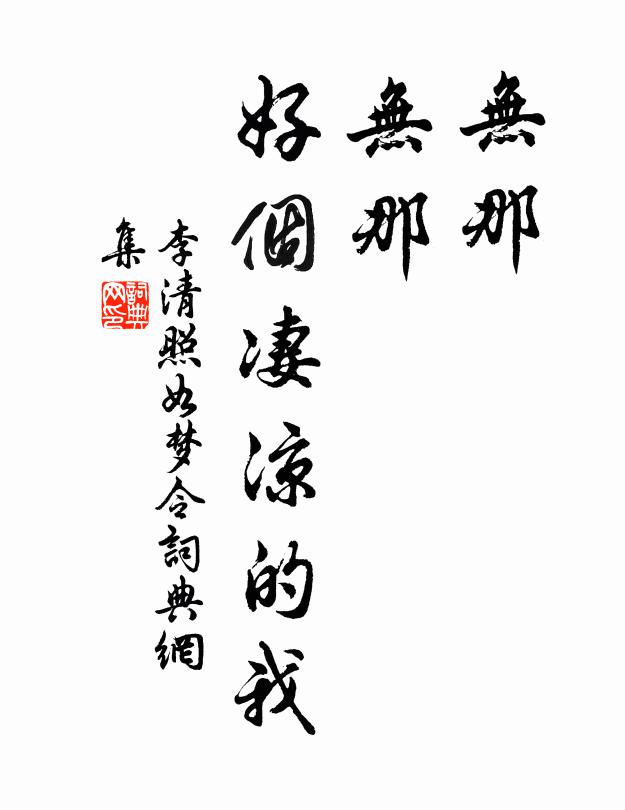 無那
無那
好個凄涼的我
李清照如梦令詞典網
集
詞典
网印